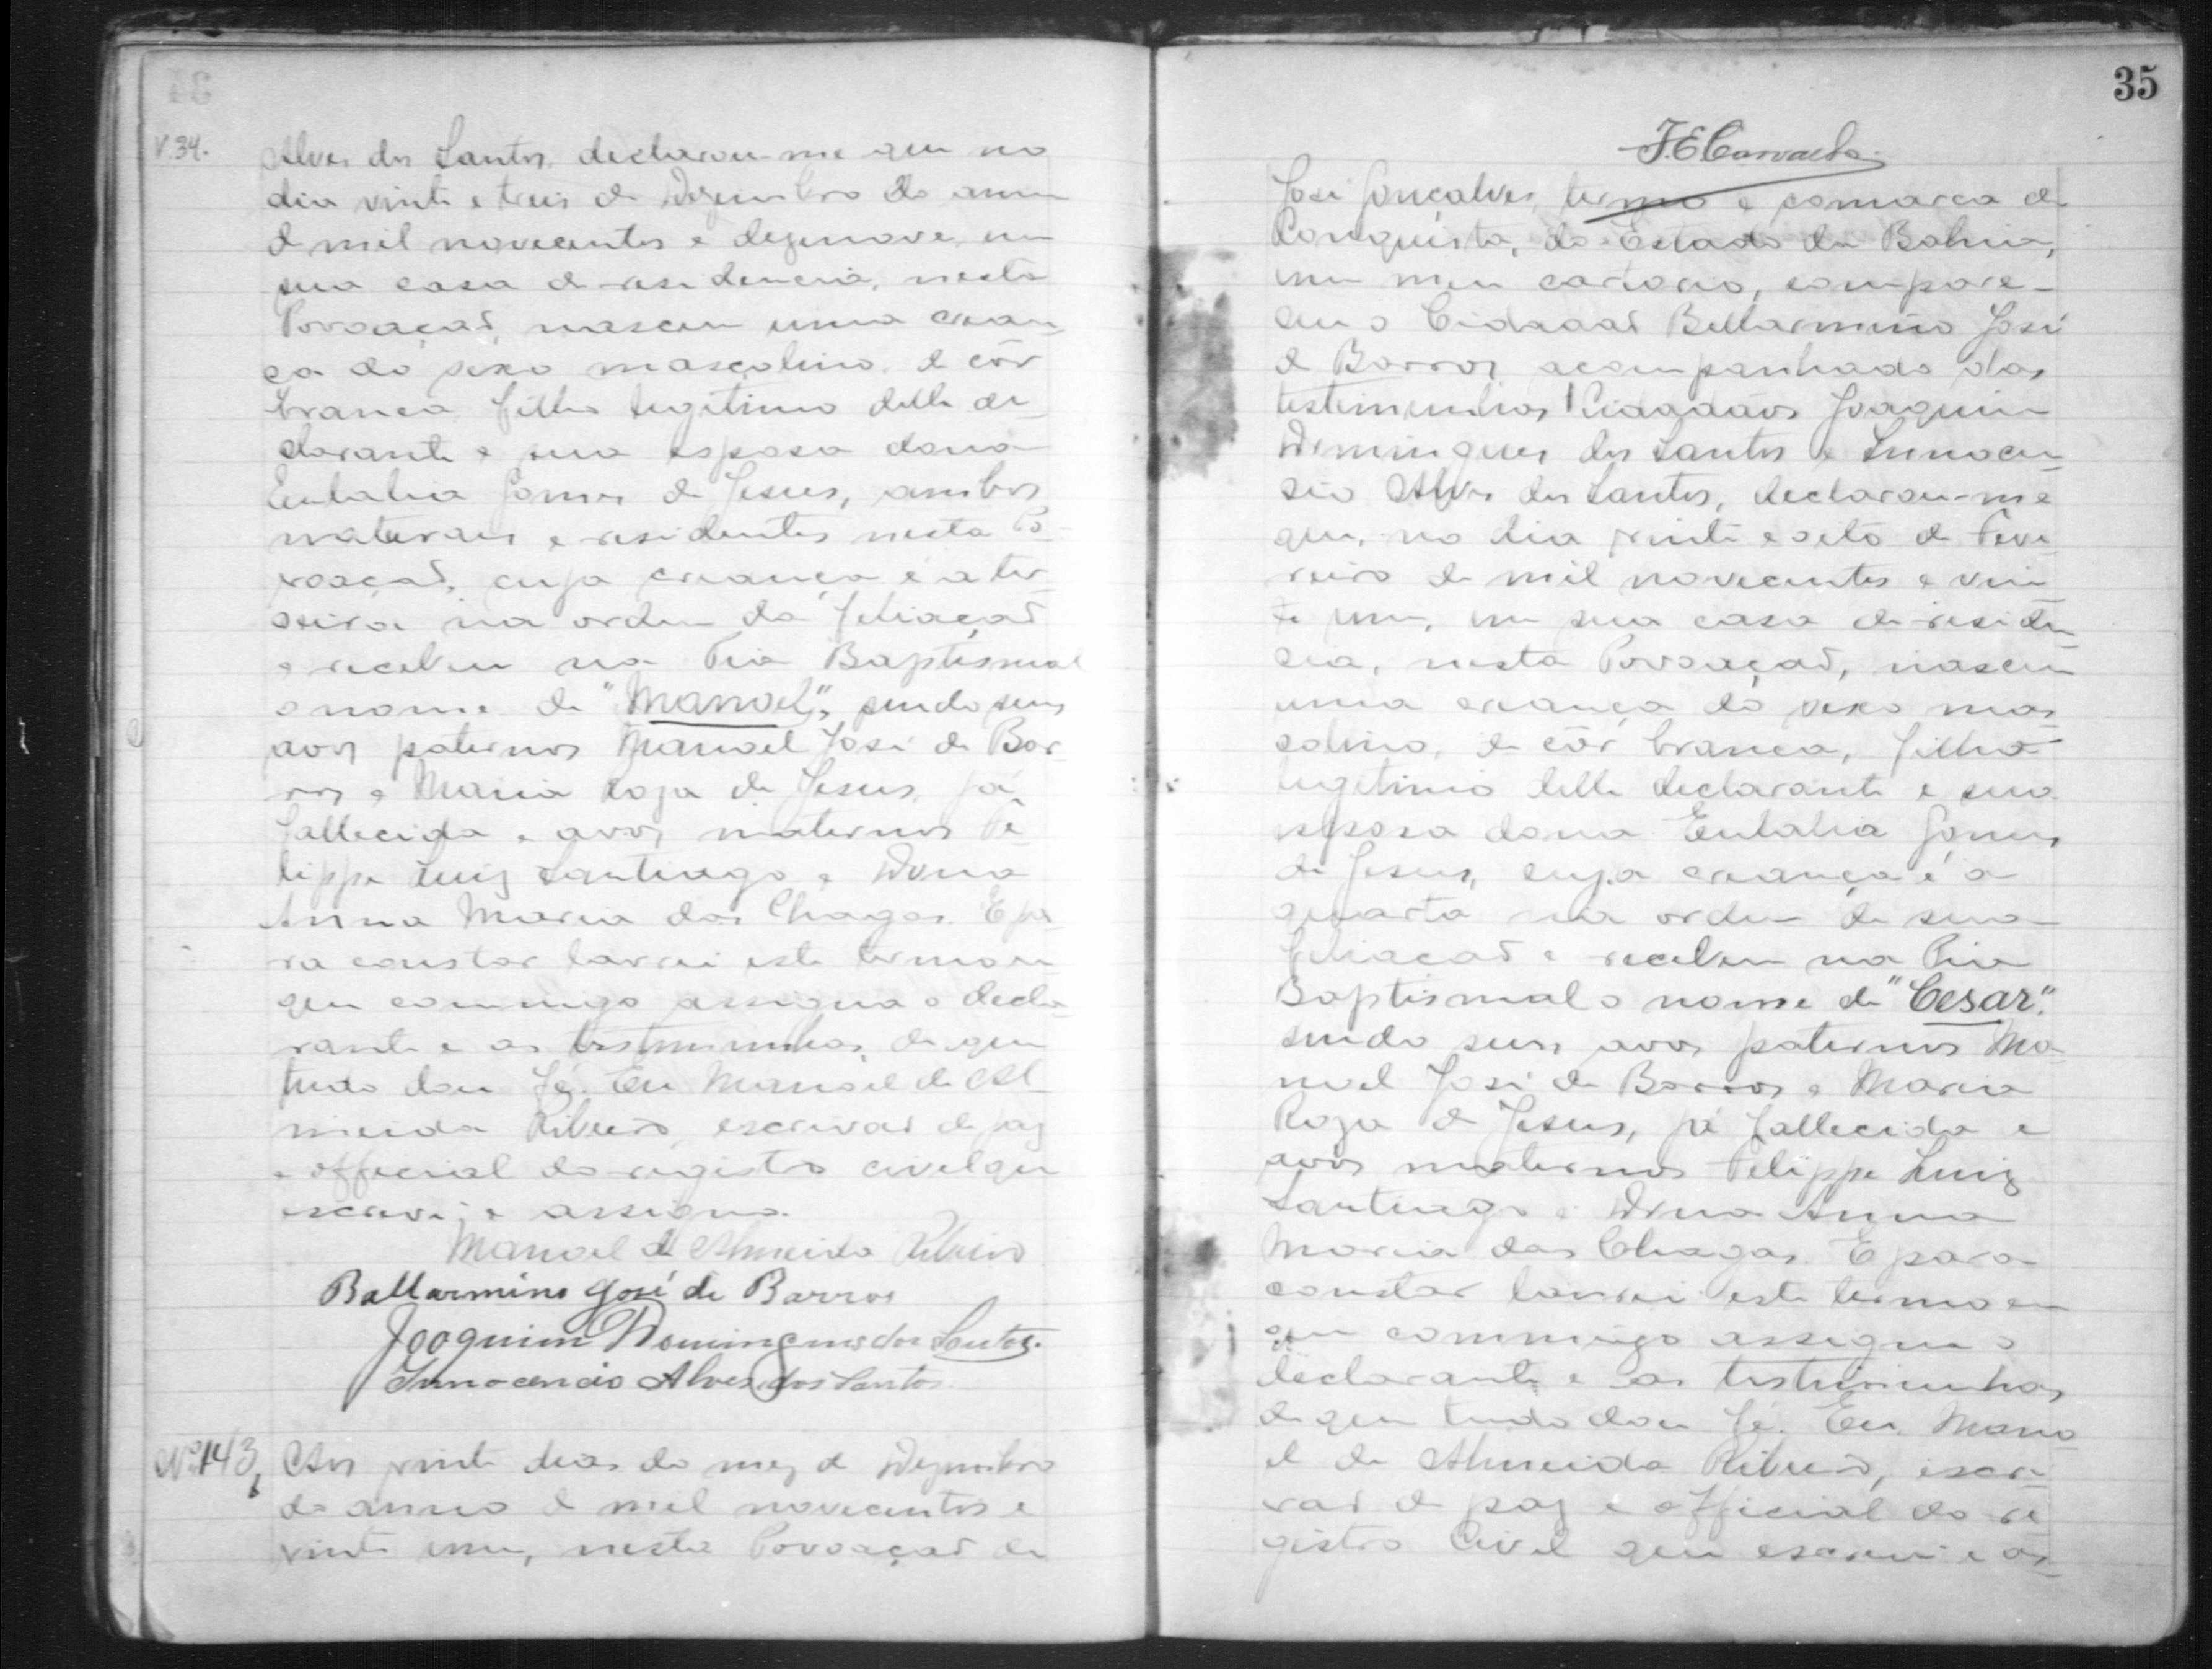 V. 34.
Alves dos Santos, declarou-me que no
dia vinte e treis de Dezembro do anno
de mil novecentos e dezenove, em
sua casa de residencia, nesta
Povoação, nasceu uma crean
ça do sexo mascolino, de côr
branca filho legitimo delle de-
clarante e sua esposa dona
Eulalia Gomes de Jesus, ambos
naturaes e residentes nesta Po-
voação, cuja creança é a ter-
seira na ordem da filiação
e recebeu na Pia Baptismal
o nome de "Manoel", sendo seus
avos paternos Manoel José de Bar-
ros e Maria Roza de Jesus, já
fallecida e avos maternos Fe-
lippe Luiz Santiago e Dona
Anna Maria das Chagas. E pa-
ra constar lavrei este termo em
que commigo assigna o decla-
rante e as testimunhas, de que
tudo dou fé. Eu Manoel de Al-
meida Ribeiro, escrivão de paz
e official do registro civil que
escrevi, e assigno.
Manoel de Almeida Ribeiro
Bellarmino José de Barros
Joaquim Domingues dos Santos.
Innocencio Alves dos Santos.
Nº 143,
Aos vinte dias do mez de Dezembro
do anno de mil novecentos e
vinte um, nesta Povoação de
35
J. E. Carvalho
José Gonçalves, termo e comarca de
Conquista, do Estado da Bahia,
em meu cartorio, compare-
ceu o Cidadão Bellarmino José
de Barros acompanhado das
testimunhas Cidadãos Joaquim
Domingues dos Santos e Innocen-
sio Alves dos Santos, declarou-me
que, no dia vinte e oito de Feve-
reiro de mil novecentos e vin-
te um, em sua casa de residen-
sia, nesta Povoação, nasceu
uma creança do sexo mas-
colino, de côr branca, filho
legitimo delle declarante e sua
esposa dona Eulalia Gomes
de Jesus, cuja creança é a
quarta na ordem de sua
filiação e recebeu na Pia
Baptismal o nome de "Cesar",
sendo seus avos paternos Ma-
noel José de Barros e Maria
Roza de Jesus, já fallecida e
avos maternos Felippe Luiz
Santiago e Dona Anna
Maria das Chagas. E para
constar lavrei este termo em
que commigo assigna o
declarante e as testimunhas,
de que tudo dou fé. Eu Mano-
el de Almeida Ribeiro, escri-
vão de paz e official do re-
gistro Civil que escrevi e as-